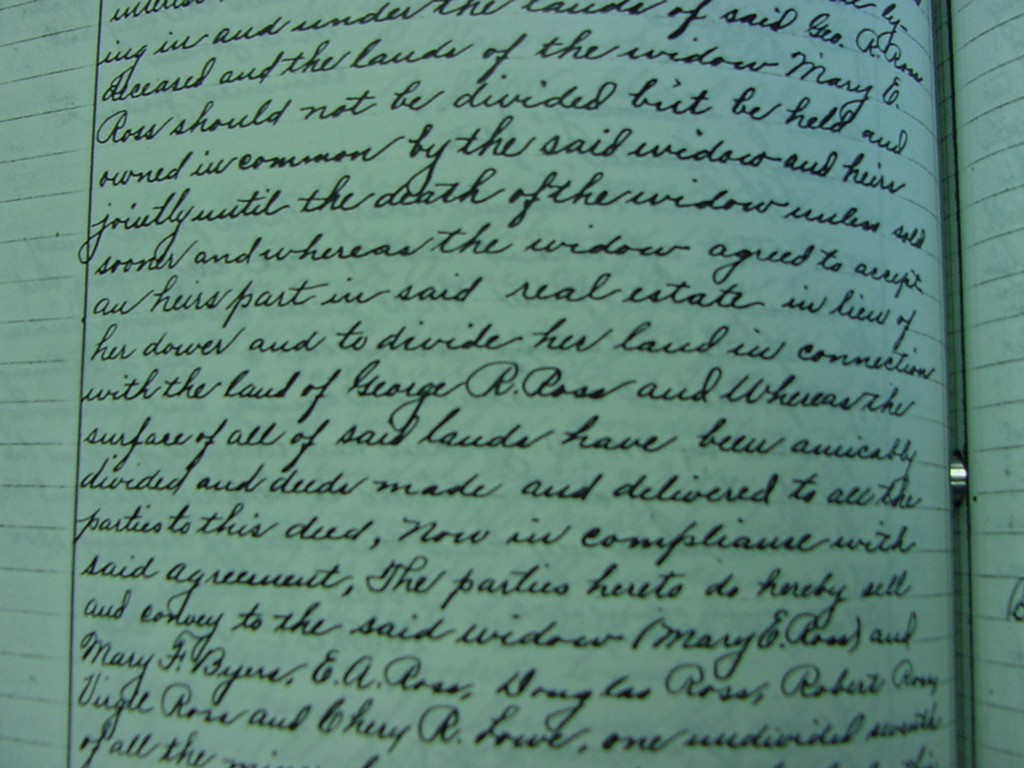 ing in and under the lands of said Geo. R. Ross
deceased and the lands of the widow Mary E.
Ross should not be divided but be held and
owned in common by the said widow and heirs
jointly until the death of the widow unless sold
sooner and whereas the widow agreed to accept
an heirs part in said real estate in lieu of
her dower and to divide her land in connection
with the land of George R. Ross and Whereas the
surface of all of said lands have been amicably
divided and deeds made and delivered to all the
parties to this deed, Now in compliance with
said agreement, The parties hereto do hereby sell
and convey to the said widow (Mary E. Ross) and
Mary F. Byers, E. A. Ross, Douglas Ross, Robert Ross,
Virgil Ross and Chery R. Lowe, one undivided seventh
of all the